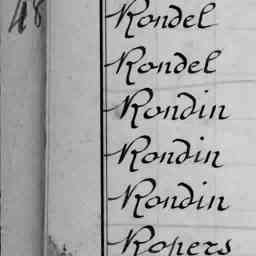 48
Rondel
Rondel
Rondin
Rondin
Rondin
Ropers